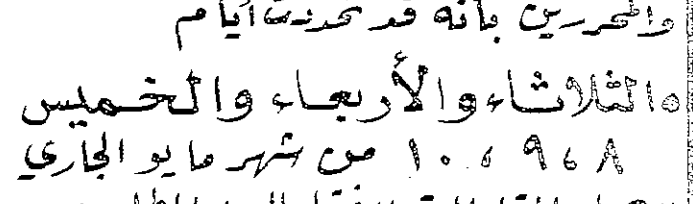 والمحررين بأنه قد تحددت أيام
الثلاثاء والأربعاء والخميس
٨ ، ٩ ، ١٠ من شهر مايو الجاري